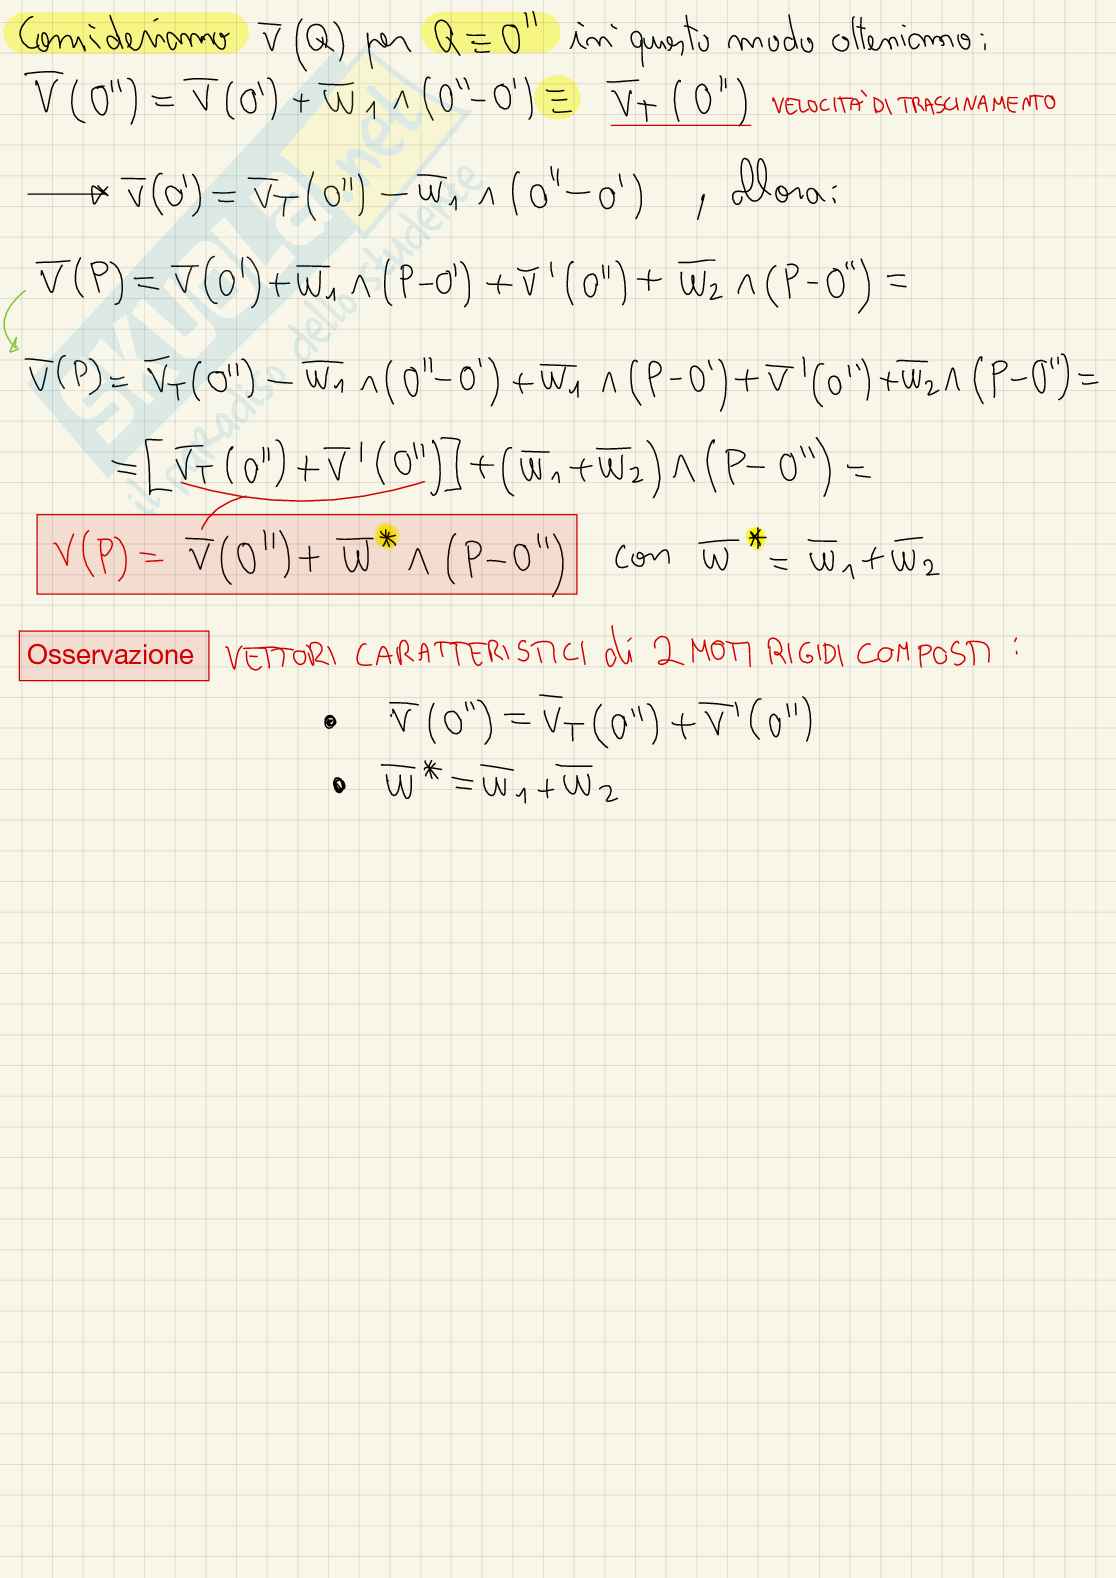 Consideriamo V̅(Q) per Q≡O'' in questo modo otteniamo:
V̅(O'') = V̅(O') + w̅₁ ∧ (O''-O') ≡ V̅T(O'') VELOCITÀ DI TRASCINAMENTO
→ V̅(O') = V̅T(O'') - w̅₁ ∧ (O''-O') , allora:
V̅(P) = V̅(O') + w̅₁ ∧ (P-O') + V̅'(O'') + w̅₂ ∧ (P-O'') =
V̅(P) = V̅T(O'') - w̅₁ ∧ (O''-O') + w̅₁ ∧ (P-O') + V̅'(O'') + w̅₂ ∧ (P-O'') =
= [V̅T(O'') + V̅'(O'')] + (w̅₁ + w̅₂) ∧ (P-O'') =
V(P) = V̅(O'') + w̅* ∧ (P-O'') con w̅* = w̅₁ + w̅₂
Osservazione VETTORI CARATTERISTICI di 2 MOTI RIGIDI COMPOSTI :
• V̅(O'') = V̅T(O'') + V̅'(O'')
• w̅* = w̅₁ + w̅₂
SKUOLA.net
il paradiso dello studente